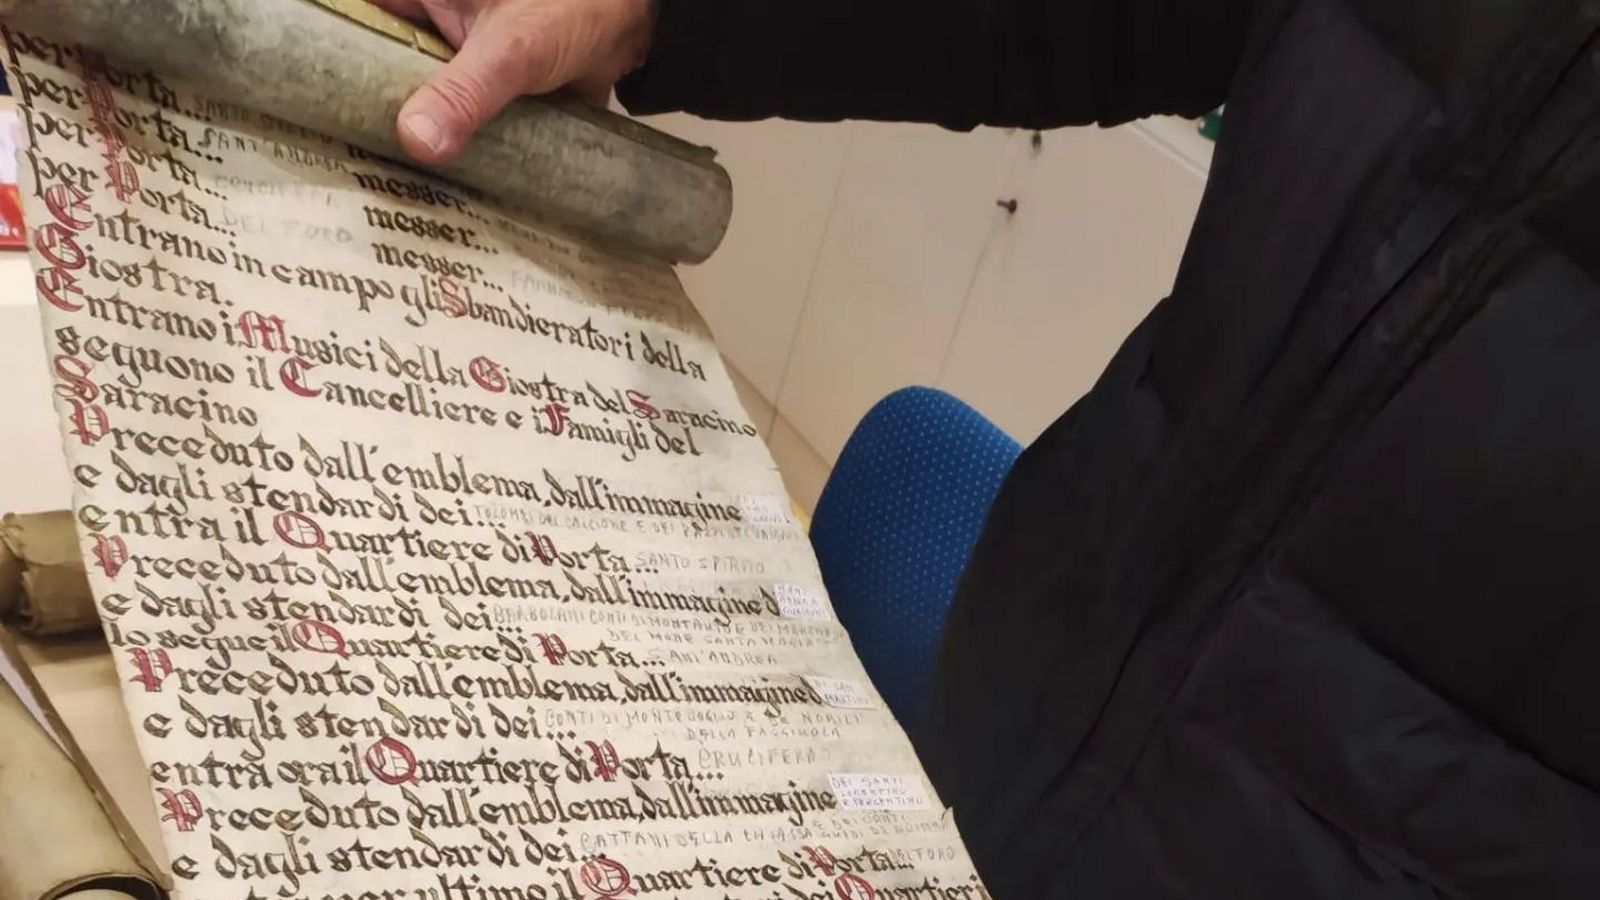 per Porta... SANTO
per Porta... SANT'ANDREA messer...
per Porta... messer...
per Porta... DEL FORO messer...
Entrano in campo gli Sbandieratori della
Giostra.
Entrano i Musici della Giostra del Saracino
seguono il Cancelliere e i Famigli del
Saracino
Preceduto dall'emblema, dall'immagine
e dagli stendardi dei...
entra il Quartiere di Porta... SANTO SPIRITO
Preceduto dall'emblema, dall'immagine d
e dagli stendardi dei... BARBOLANI CONTI DI MONTAUTO E DEI
DEL MONTE SANTA MARIA
lo segue il Quartiere di Porta... SANT'ANDREA
Preceduto dall'emblema, dall'immagine d DI SAN MARTINO
e dagli stendardi dei... CONTI DI MONTEDOGLIO E NOBILI
DELLA FAGGIUOLA
entra ora il Quartiere di Porta... CRUCIFERA
Preceduto dall'emblema, dall'immagine DEI SANTI LORENTINO E PERGENTINO
e dagli stendardi dei... CATTANI DELLA CHIASSA E DEI CONTI GUIDI DI
per ultimo il Quartiere di Porta... DEL FORO
dei Quartieri